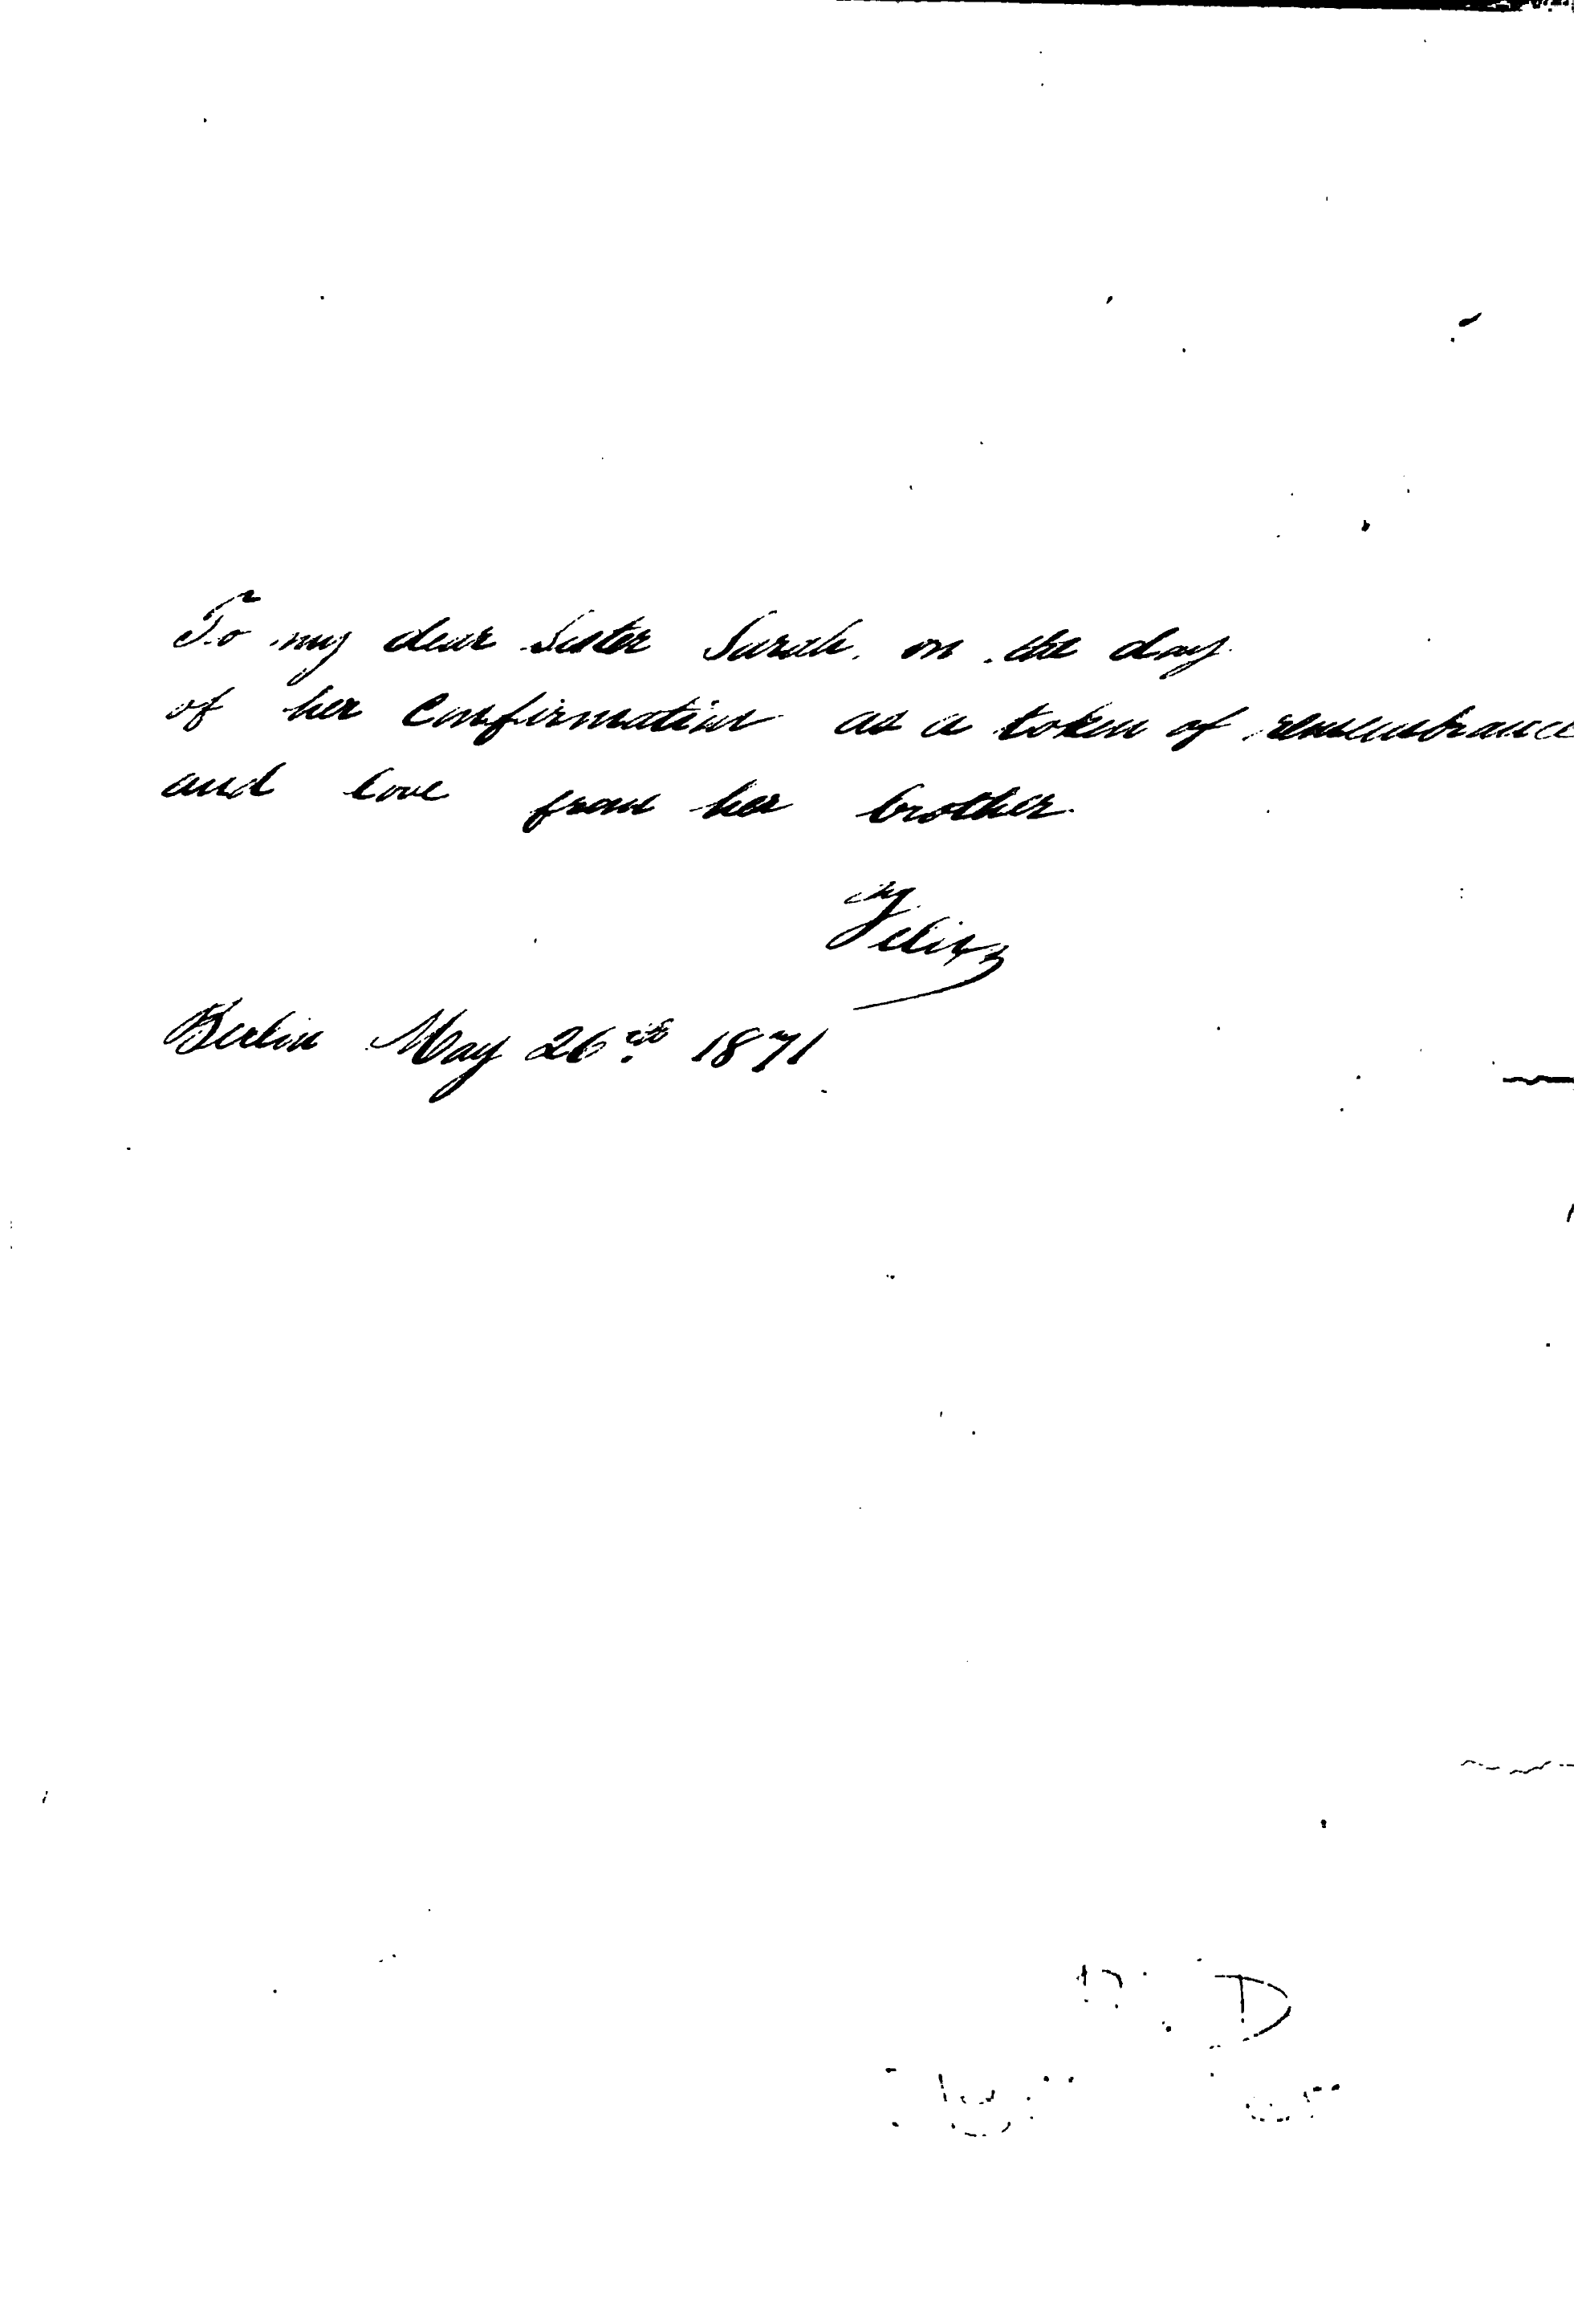 To my dear Sister Sarah. on the day
of her Confirmation as a token of remembrance
and love from her brother.
Felix
Berlin May 26th 1871